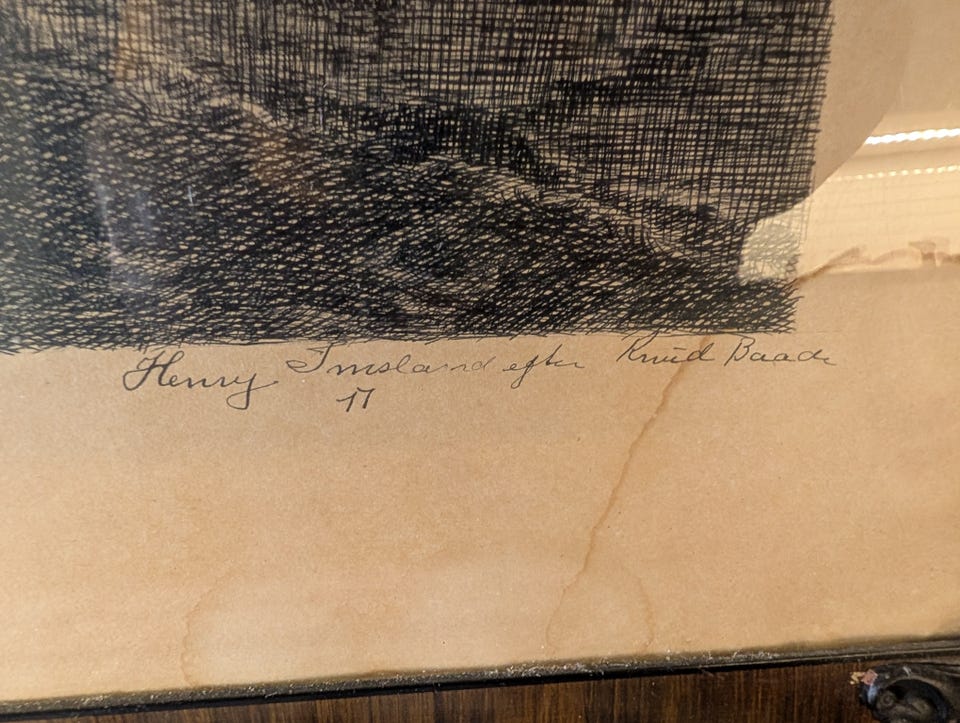 Henry Imsland efter Knud Baade
17